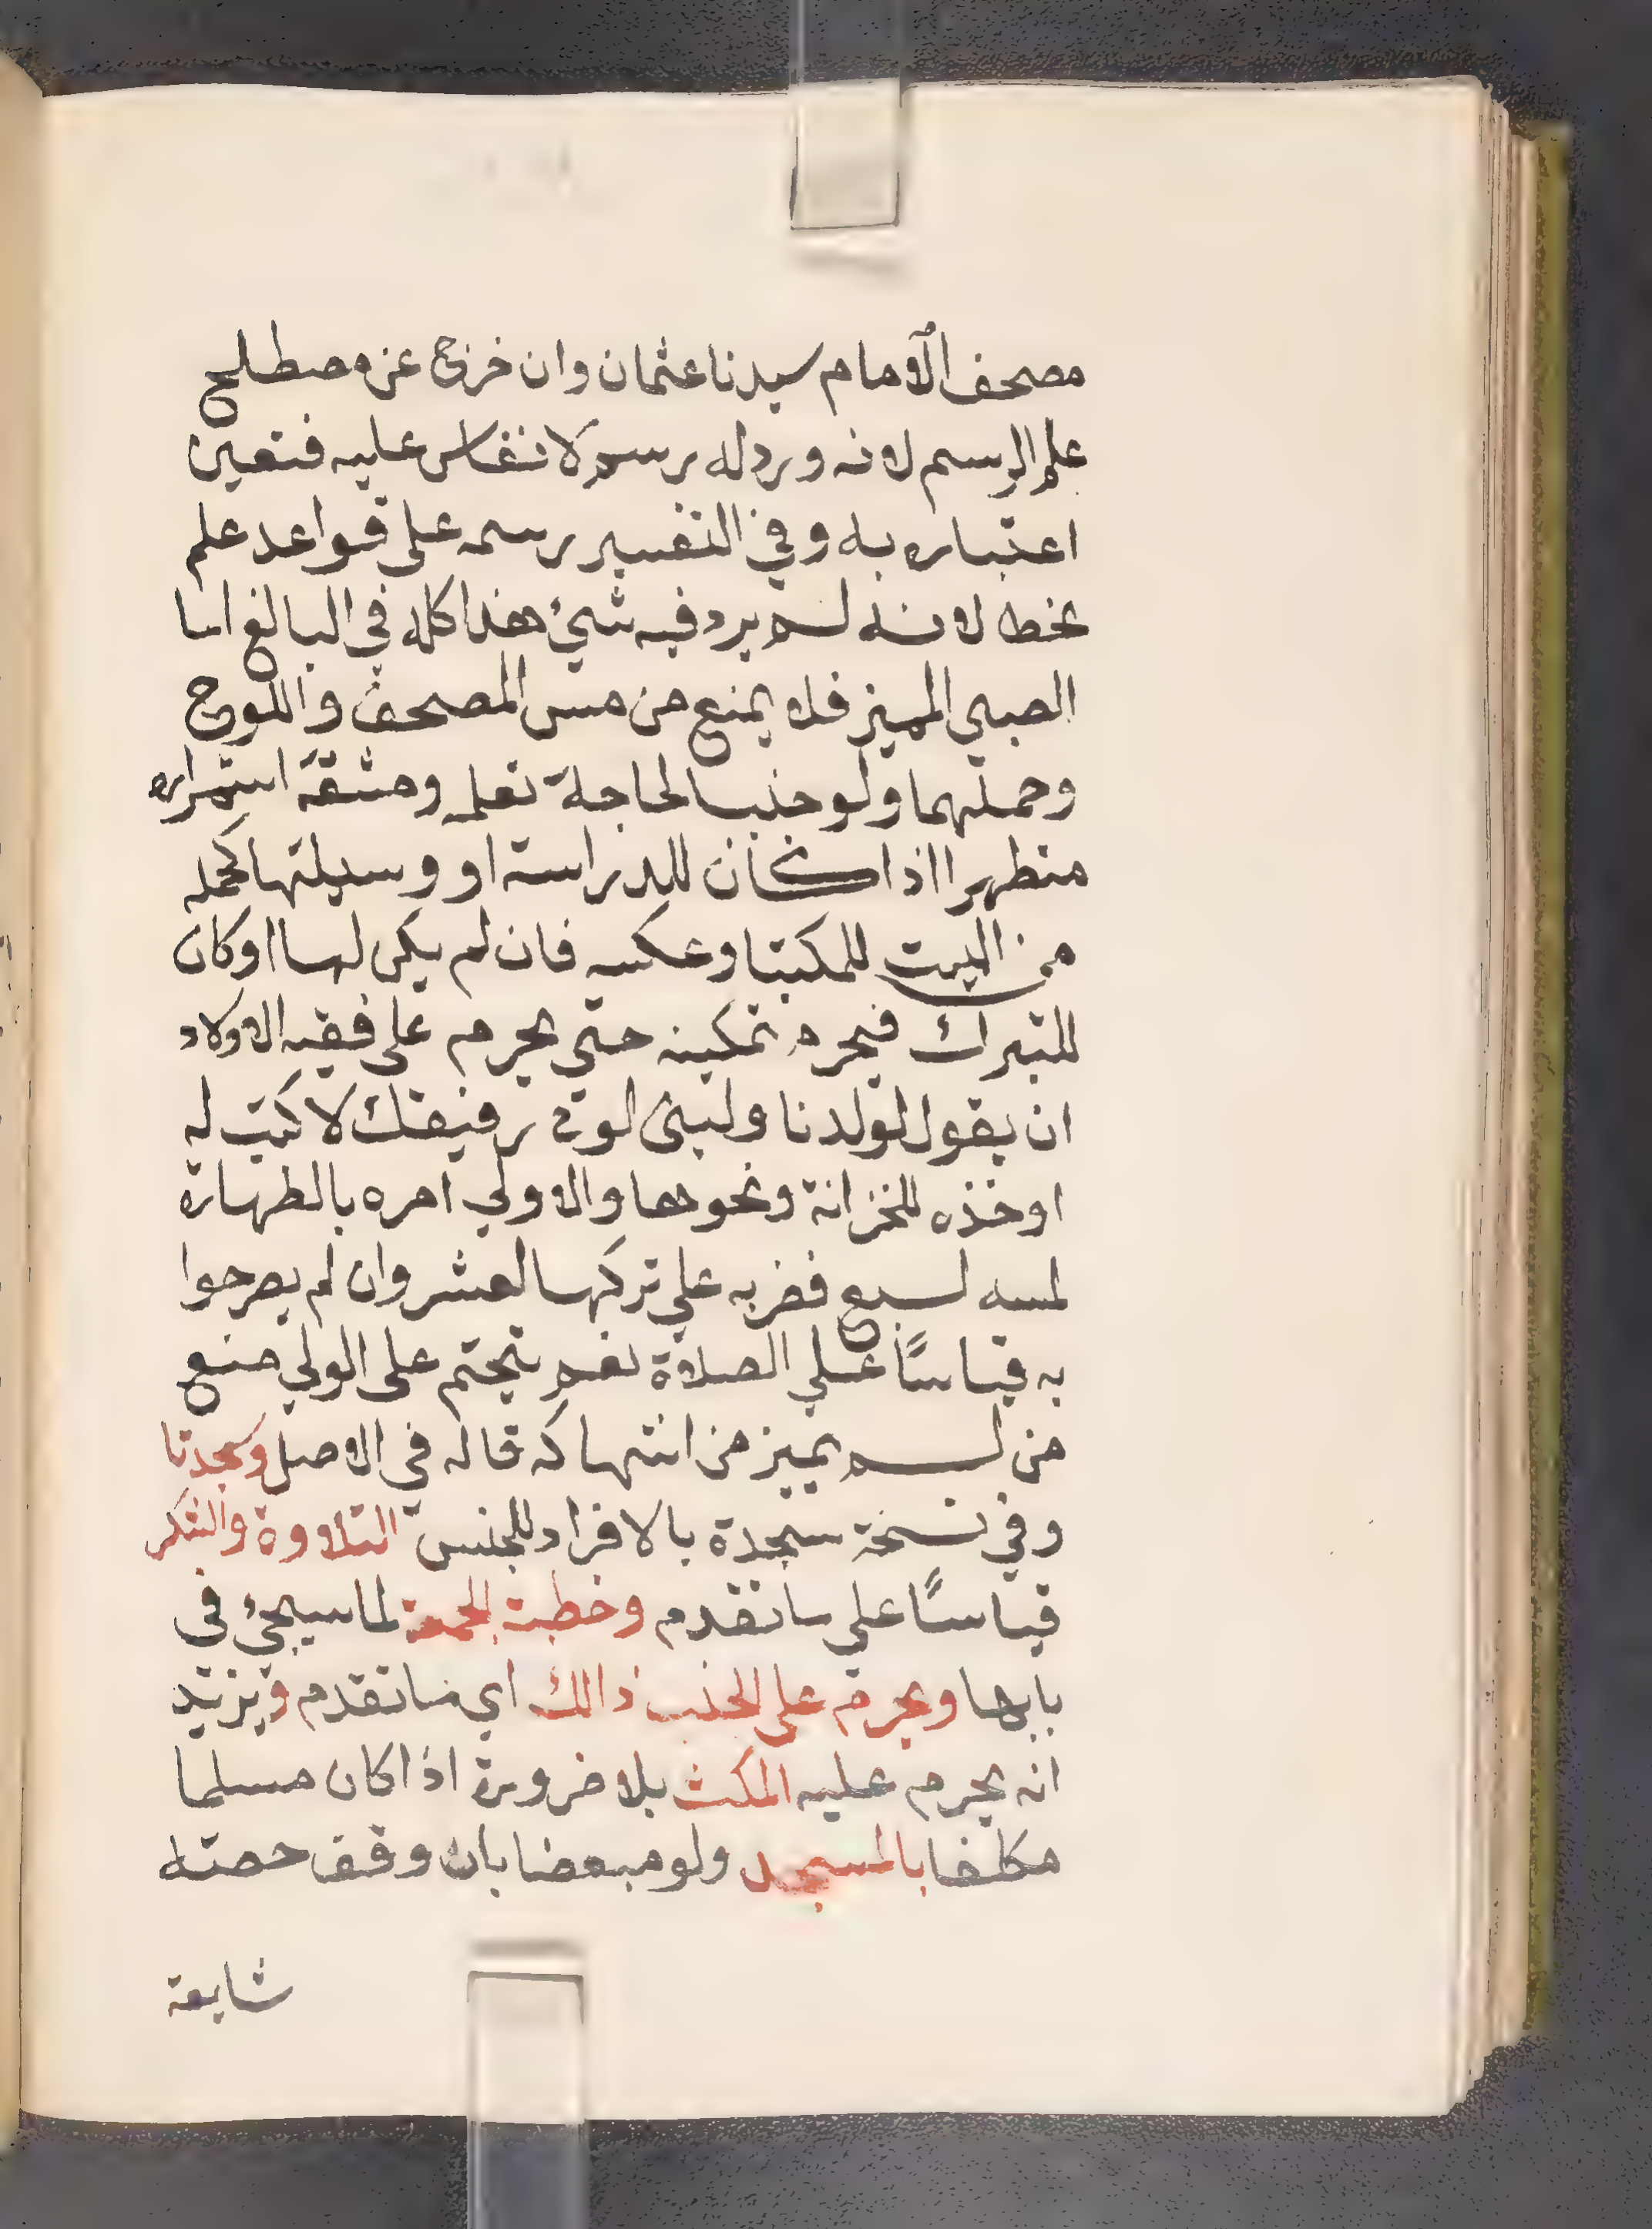 مصحف الامام سيدنا عثمان وان خرج عن مصطلح
علم الرسم لانه ورد له رسم لا نقاس عليه فتعين
اعتباره به وفي التفسير رسمه على قواعد علم
بخط لانه لم يرد فيه شيء هذا كله في البالغ اما
الصبي المميز فلا يمنع من مس المصحف واللوح
وحملهما ولو جنبا لحاجة تعلمه ومشقة استمراره
متطهرا اذا كان للدراسة او وسيلتها كحمله
من البيت للمكتب وعكسه فان لم يكن لها او كان
للتبرك فيحرم تمكينه حتي يحرم على فقيه الاولاد
ان يقول لولد ناولني لوح رفيقك لاكتب له
او خذه للخزانة ونحوها والاولي امره بالطهارة
لمسه لسبع فضربه علي تركها لعشر وان لم يصرحوا
به قياسًا علي الصلاة نعم يتحتم على الولي منع
من لم يميز من انتهاكه قاله في الاصل وسجدتا
وفي نسخة سجدة بالافراد للجنس التلاوة والشكر
قياسًا علي ما تقدم وخطبة الجمعة لما سيجيء في
بابها ويحرم على الجنب ذالك اي ما تقدم ويزيد
انه يحرم عليه المكث بلا ضرورة اذا كان مسلما
مكلفا بالمسجد ولو مبعضا بان وقف حصته
شايعة